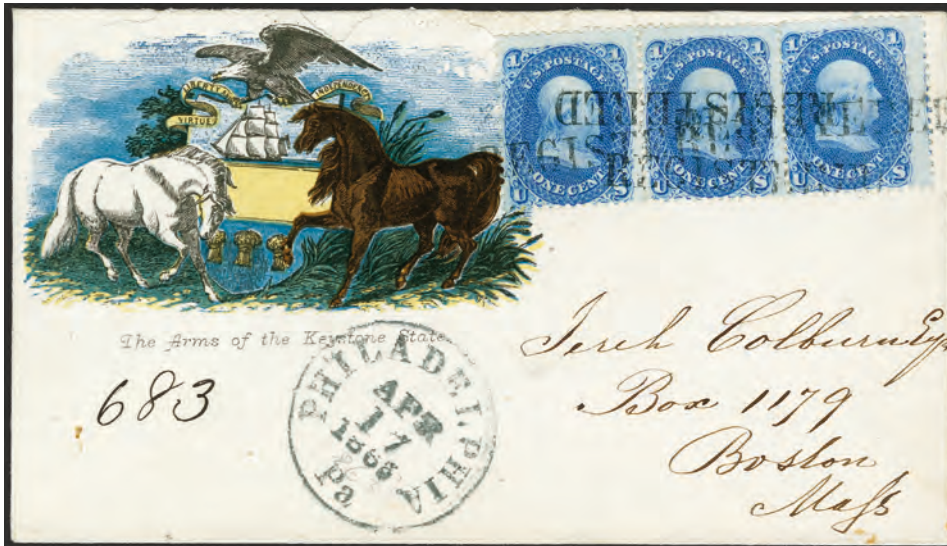 VIRTUE LIBERTY AND INDEPENDENCE
1 U.S. POSTAGE 1
U ONE CENT S
1 U.S. POSTAGE 1
U ONE CENT S
1 U.S. POSTAGE 1
U ONE CENT S
REGISTERED
The Arms of the Keystone State.
683
PHILADELPHIA
APR
17
Pa
Jereh Colburn Esq
Box 1179
Boston
Mass